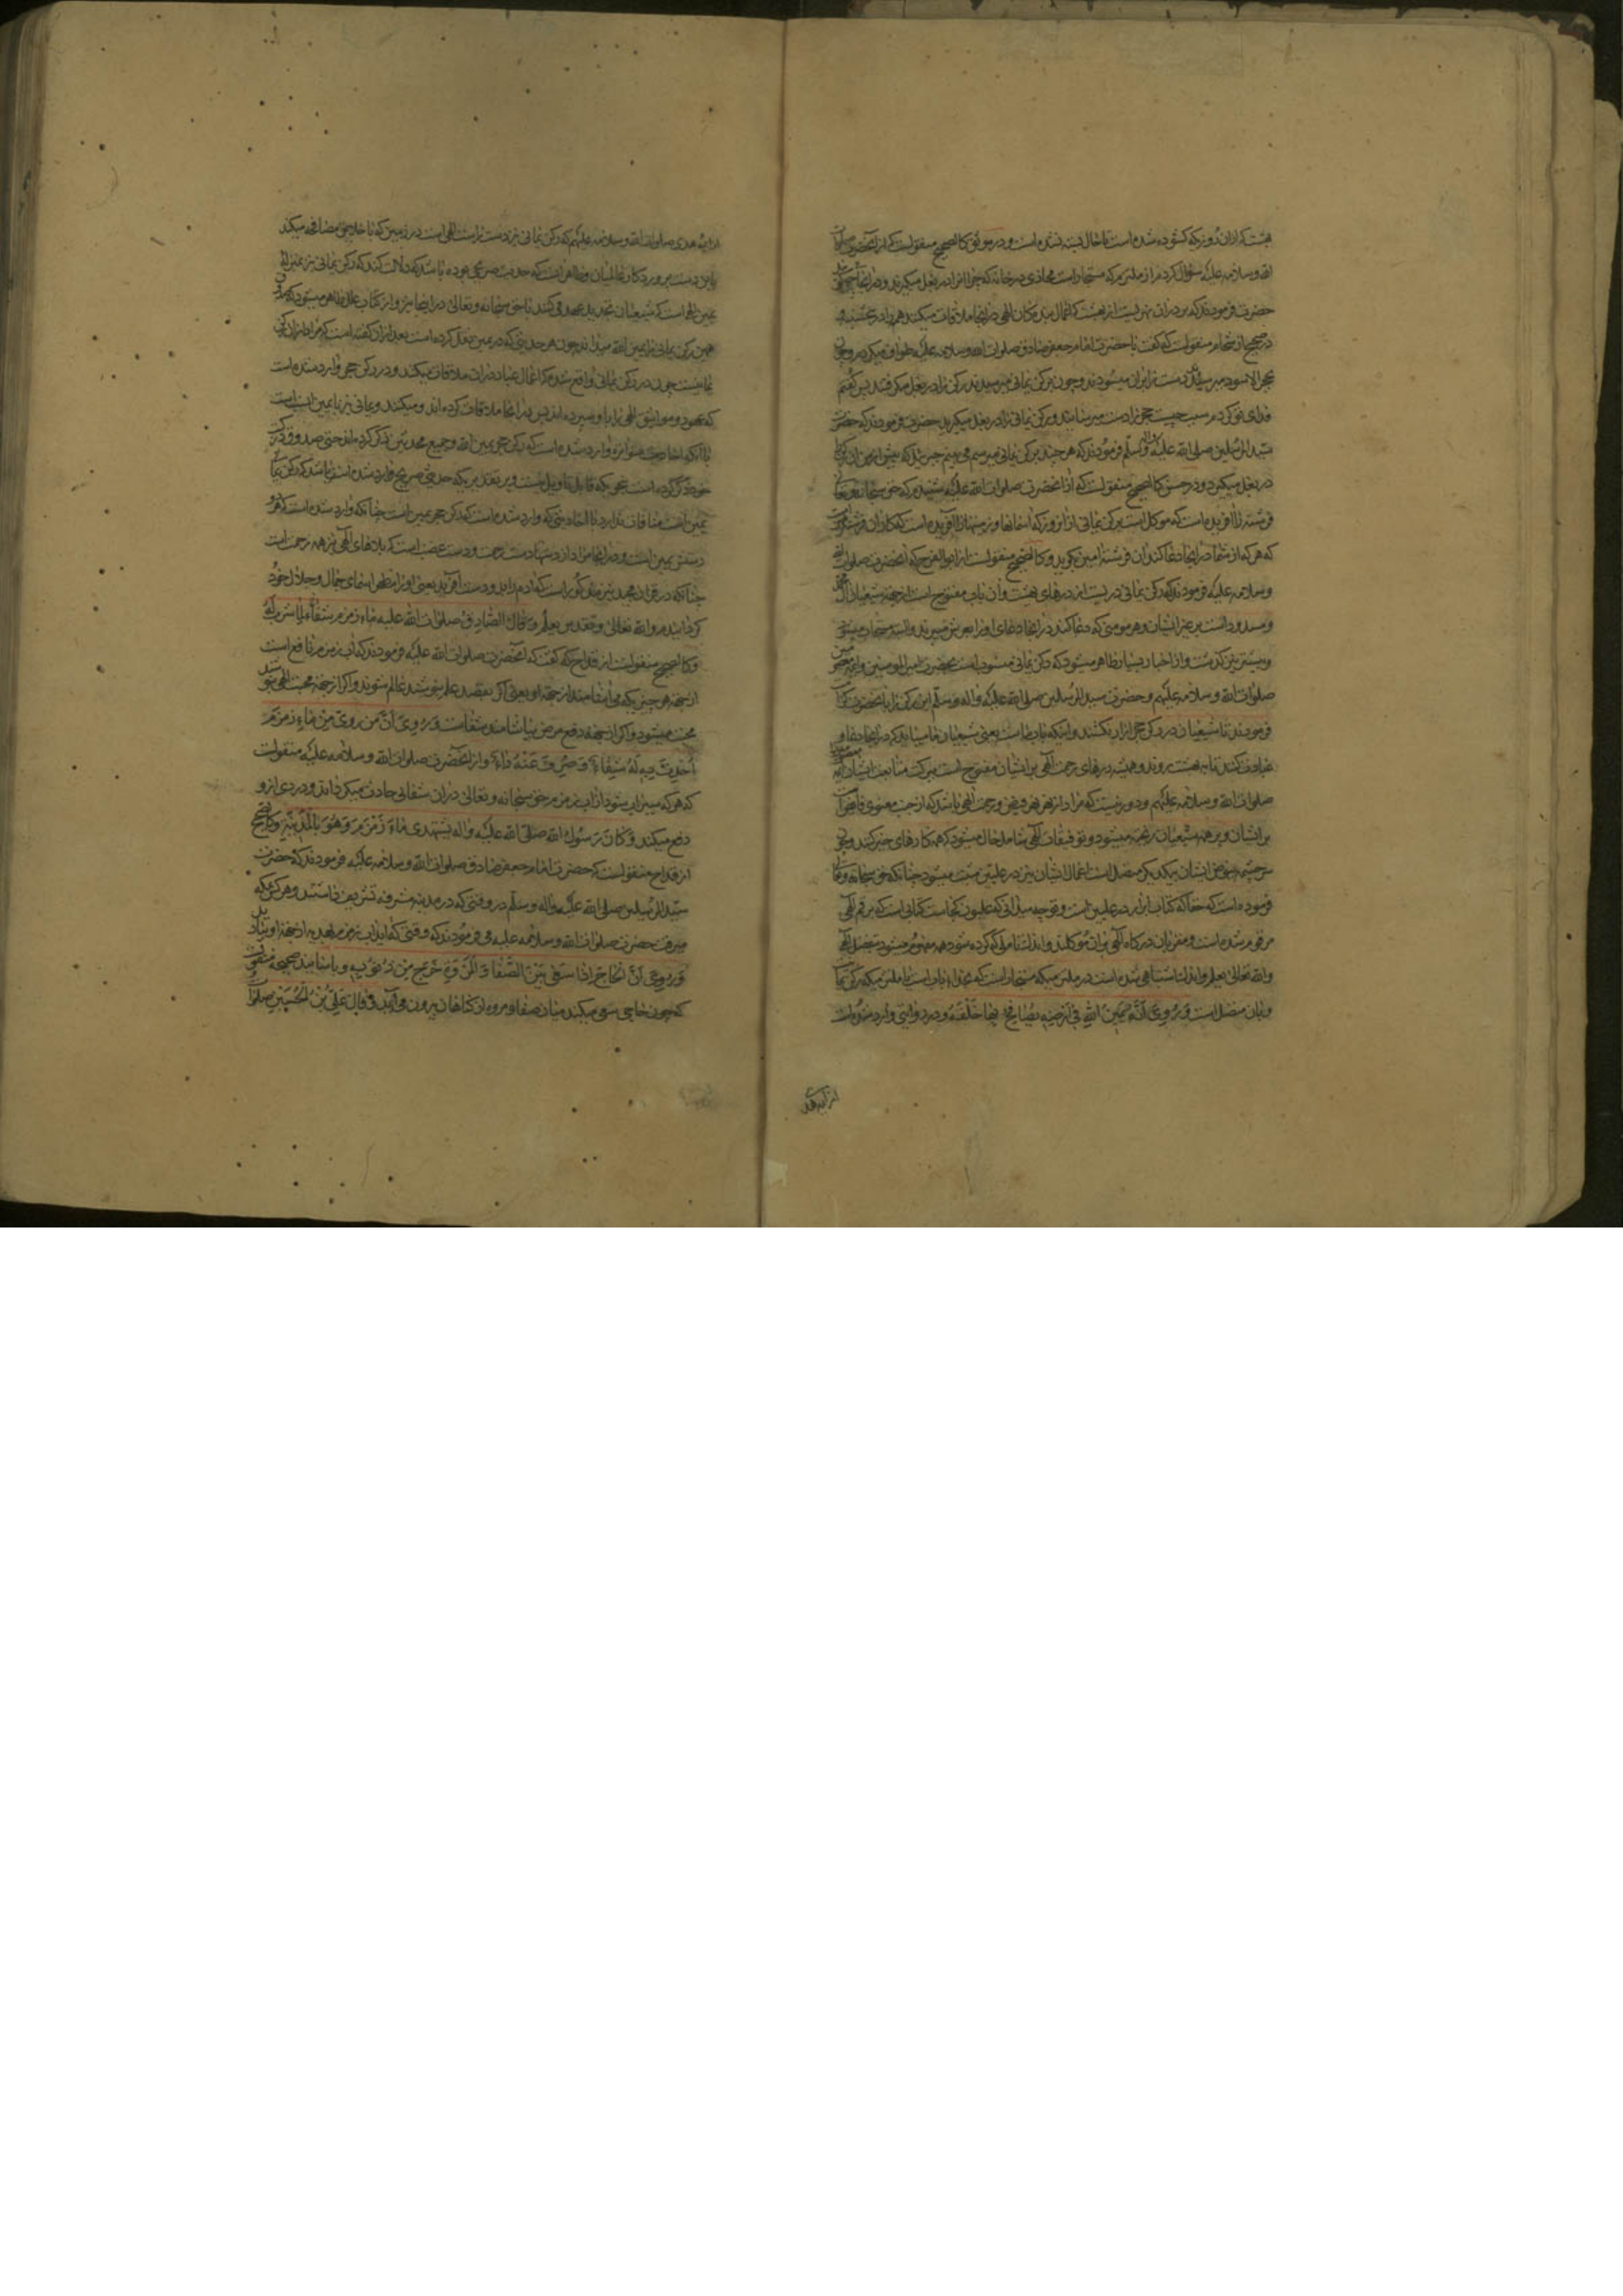 بهشت که ازان روز که کشوده شده است تا حال بسته نشده است و در موثق کالصحیح منقولست که از آنحضرت صلوات
الله و سلامه علیه سؤال کردم از ملتزم که مستجار است محاذی در خانه که چرا انرا در بغل میکیرند و در انجا
حضرت فرمودند که بر در ان نهریست از بهشت که اعمال بندکان الهی در انجا ملاقات میکنند هر
در صحیح از شحام منقولست که گفت با حضرت امام جعفر صادق صلوات الله و سلامه علیه طواف میکردم و چون
بحجر الاسود میرسیدند دست برابران میسودند و چون برکن یمانی میرسیدند رکن را در بغل میکرفتند پس گفتم
فدای تو کردم سبب چیست حجر را دست میرسانید و رکن یمانی را در بغل میکیرید حضرت فرمودند که حضرت
سید المرسلین صلی الله علیه و آله و سلم فرمودند که هر چند برکن یمانی میرسم می بینم جبرئیل که پیش از من ان رکن را
در بغل میکیرد و در حسن کالصحیح منقولست که از انحضرت صلوات الله علیه شنیدم که حق سبحانه و تعالی
فرشته را آفریده است که موکل است برکن یمانی از انروز که اسمانها و زمینها را آفریده است که کار ان فرشته
که هر که از شما در انجا دعا کند ان فرشته امین کوید و کالصحیح منقولست از ابو الفرج که انحضرت صلوات الله
و سلامه علیه فرمودند که رکن یمانی دریست از درهای بهشت و ان باب مفتوح است از جهة شیعیان آل محمد
و مسدود است بر غیر ایشان و هر مومنی که دعا کند در انجا دعای او را بعرش میبرند و البته مستجاب میشود
و پیشتر نیز کذشت و از اخبار بسیار ظاهر میشود که رکن یمانی منسوب است بحضرت امیر المومنین و ائمه معصومین
صلوات الله و سلامه علیهم و حضرت سید المرسلین صلی الله علیه و آله و سلم این رکن را با نحضرت
فرمودند تا شیعیان در رکن حجر ازار نکشند و اینکه باب ماست یعنی شیعیان ما میباید که در انجا دعا و
عبادت کنند تا به بهشت روند و همیشه درهای رحمت الهی بر ایشان مفتوح است ببرکت متابعت ایشان ائمه
صلوات الله و سلامه علیهم و دور نیست که مراد از نهر نهر فیض و رحمت الهی باشد که از جنت معنوی
بر ایشان و بر همه شیعیان ریخته میشود و توفیقات الهی شامل حال میشود که همه کارهای خیر کنند و چون
سرچشمه فیض ایشان بیکدیکر متصل است اعمال ایشان نیز در علیین ثبت میشود چنانکه حق سبحانه و تعالی
فرموده است که حقا که کتاب ابرار در علیین است و تو چه میدانی که علیون کجاست کتابی است که برقم الهی
مرقوم شده است و مقربان درکاه الهی بران موکلند و اندک تاملی که کرده شود همه مفهوم میشود بفضل الهی
والله تعالی یعلم و اندک اشتباهی شده است در ملتزم میکه مستجار است که بحذاء باب است با ملتزم میکه رکن یمانی
و بان متصل است وَ رُوِیَ اَنَّهُ یَمینُ اللهِ فی اَرْضِه یُصافِحُ بِها خَلْقَهُ و در روایتی وارد شده است
از ایمه هدی
ایمه هدی صلوات الله و سلامه علیهم که رکن یمانی نیز دست راست الهی است در زمین که با خلایق مصافحه میکند
باین دست پروردکار عالمیان و ظاهر انست که حدیث صریحی بوده باشد که دلالت کند که رکن یمانی نیز بمنزله
یمین الهی است که شیعیان تجدید عهد می کنند با حق سبحانه و تعالی در انجا نیز و از کتاب علل ظاهر میشود که
همین رکن یمانی را یمین الله میداند چون هر حدیثی که در یمین نقل کرده است بعد از ان گفته است که مراد از ان رکن
یمانیست چون در رکن یمانی واقع شده که اعمال عباد در ان ملاقات میکنند و در رکن حجر وارد شده است
که عهود و مواثیق الهی را باو سپرده اند پس در انجا ملاقات کرده اند و میکنند و یمانی نیز با یمین انسب است
با انکه احادیث متواتره وارد شده است که رکن حجر یمین الله و جمیع محدثین ذکر کرده اند حتی صدوق
خود ذکر کرده است بنحویکه قابل تاویل نیست و بر تقدیریکه حدیثی صریح وارد شده است باشد که رکن یمانی
یمین است منافات ندارد با احادیثی که وارد شده است که رکن حجر یمین است چنانکه وارد شده است که هر دو
دستش یمین است و در انجا مراد از دستها دست رحمت و دست غضب است که بلاهای الهی نیز همه رحمت است
چنانکه در قران مجید نیز مذکور است که آدم را بدو دست آفرید یعنی او را مظهر اسمای جمال و جلال خود
کردانیدم والله تعالی و تقدس یعلم وَ قالَ الصّادِقُ صلوات الله علیه ماءُ زمزم شفاءٌ لِما شُرِبَ لَهُ
و کالصحیح منقولست از قداح که گفت که انحضرت صلوات الله علیه فرمودند که اب زمزم نافع است
از جهة هر چیزیکه می اشامند از جهة او یعنی اکر بقصد علم بنوشند عالم شوند و اکر از جهة محبت الهی بنوشند
محب میشود و اکر از جهة دفع مرض بیاشامند شفاست وَ رُوِیَ اَنَّ مَنْ رَوِیَ مِنْ ماءِ زَمْزَمَ
اُحْدِثَ بِهِ لَهُ شِفاءٌ وَ صُرِفَ عَنْهُ داءٌ و از انحضرت صلوات الله و سلامه علیه منقولست
که هر که سیراب شود از اب زمزم حق سبحانه و تعالی در ان شفائی حادث میکرداند و دردی از او
دفع میکند وَ کانَ رَسُولُ اللهِ صلی الله علیه و آله یَسْتَهْدی ماءَ زَمْزَمَ وَ هُوَ بِالْمَدینَةِ و کالصحیح
از قداح منقولست که حضرت امام جعفر صادق صلوات الله و سلامه علیه فرمودند که حضرت
سید المرسلین صلی الله علیه و آله و سلم در وقتی که در مدینه مشرفه تشریف داشتند و هر کس بمکه
میرفت حضرت صلوات الله و سلامه علیه می فرمودند که وقتی که بیاید اب زمزم بهدیه از جهة او بیاورد
وَ رُوِیَ اَنَّ الْحاجَّ اِذا سَعی بَیْنَ الصَّفا وَ الْمَرْوَةِ خَرَجَ مِنْ ذُنُوبِهِ و باسانید صحیحه منقولست
که چون حاجی سعی میکند میان صفا و مروه از کناهان بیرون می آید وَ قالَ عَلِیُّ بْنُ الْحُسَیْنِ صلوات